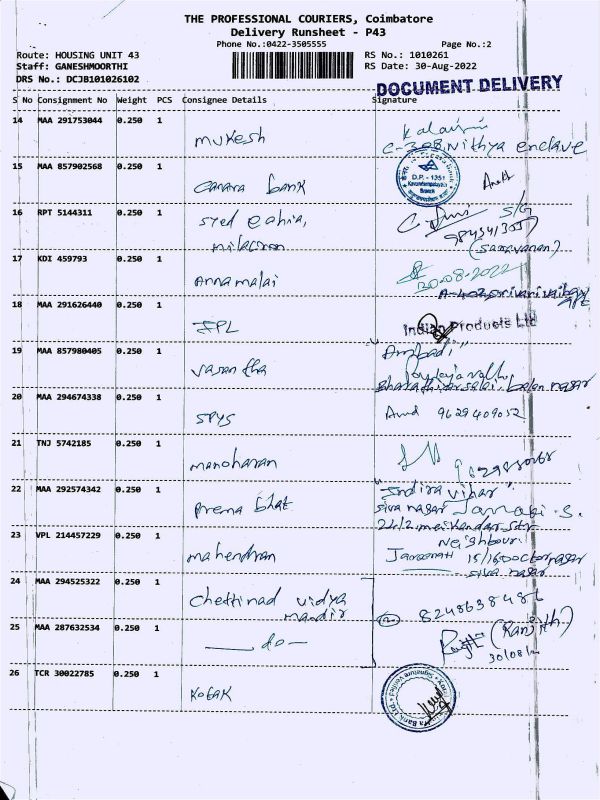 THE PROFESSIONAL COURIERS, Coimbatore
Delivery Runsheet - P43
Phone No.:0422-3505555 Page No.:2
Route: HOUSING UNIT 43 RS No.: 1010261
Staff: GANESHMOORTHI RS Date: 30-Aug-2022
DRS No.: DCJB101026102
DOCUMENT DELIVERY
S No Consignment No Weight PCS Consignee Details Signature
14 MAA 291753044 0.250 1
Mukesh C-308 Nithya enclave
15 MAA 857902568 0.250 1
Canara bank D.P. - 1351
Branch
16 RPT 5144311 0.250 1 S/G
Syed
(Saravanan)
17 KDI 459793 0.250 1
30-08-2022
Annamalai
18 MAA 291626440 0.250 1
IPL Indian Products Ltd
19 MAA 857980405 0.250 1
Vasantha
20 MAA 294674338 0.250 1
SPYS 9629409052
21 TNJ 5742185 0.250 1
Manoharan
22 MAA 292574342 0.250 1 "Indira vihar"
Prema bhat siva nagar Janaki. S.
23 VPL 214457229 0.250 1 Neighbour
Mahendran 15/16 Doctor nagar
siva nagar
24 MAA 294525322 0.250 1
Chettinad vidya 8248638486
mandir
25 MAA 287632534 0.250 1 (Ranjith)
do 30/08/2
26 TCR 30022785 0.250 1
Kotak